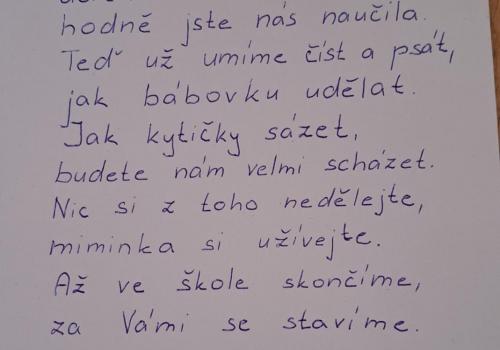 hodně jste nás naučila.
Teď už umíme číst a psát,
jak bábovku udělat.
Jak kytičky sázet,
budete nám velmi scházet.
Nic si z toho nedělejte,
miminka si užívejte.
Až ve škole skončíme,
za Vámi se stavíme.